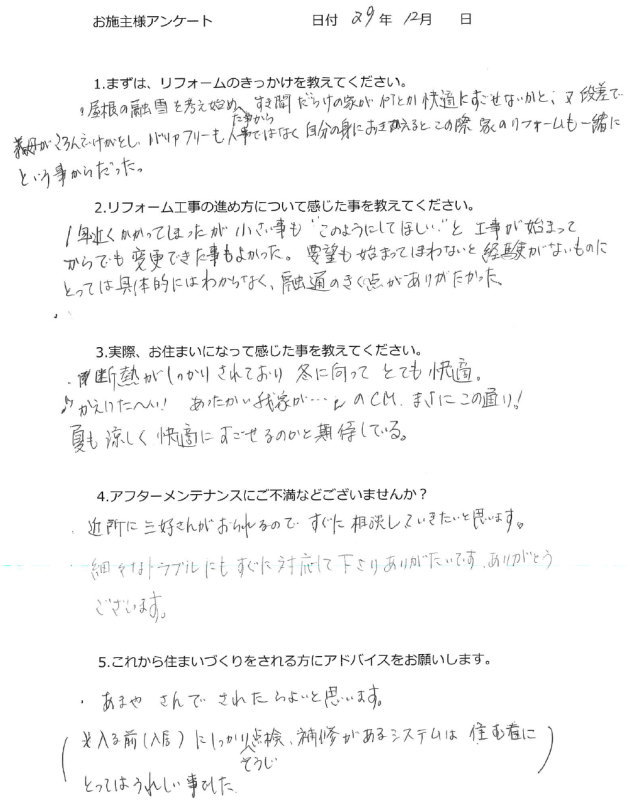 お施主様アンケート　日付 29年 12月　日
1.まずは、リフォームのきっかけを教えてください。
・屋根の融雪を考え始め、すき間だらけの家が何とか快適にすごせないかと、又段差で
た事から
義母がころんでけがをし、バリアフリーも人事ではなく自分の身におきかえるとこの際家のリフォームも一緒に
という事からだった。
2.リフォーム工事の進め方について感じた事を教えてください。
1年近くかかってしまったが小さい事も"このようにしてほしい"と工事が始まって
からでも変更できた事もよかった。要望も始まってしまわないと経験がないものに
とっては具体的にはわからなく、融通のきく点がありがたかった。
3.実際、お住まいになって感じた事を教えてください。
・断熱がしっかりされており冬に向ってとても快適。
♪かえりた〜い! あったかい我家が…♪のCM.まさにこの通り!
夏も涼しく快適にすごせるのかと期待している。
4.アフターメンテナンスにご不満などございませんか？
・近所に三好さんがおられるのですぐに相談していきたいと思います。
・細々なトラブルにもすぐに対応して下さりありがたいです.ありがとう
ございます。
5.これから住まいづくりをされる方にアドバイスをお願いします。
・あまや さんで されたらよいと思います。
(※入る前(入居)にしっかり点検、補修があるシステムは住む者に
そうじ
とってはうれしい事でした.)